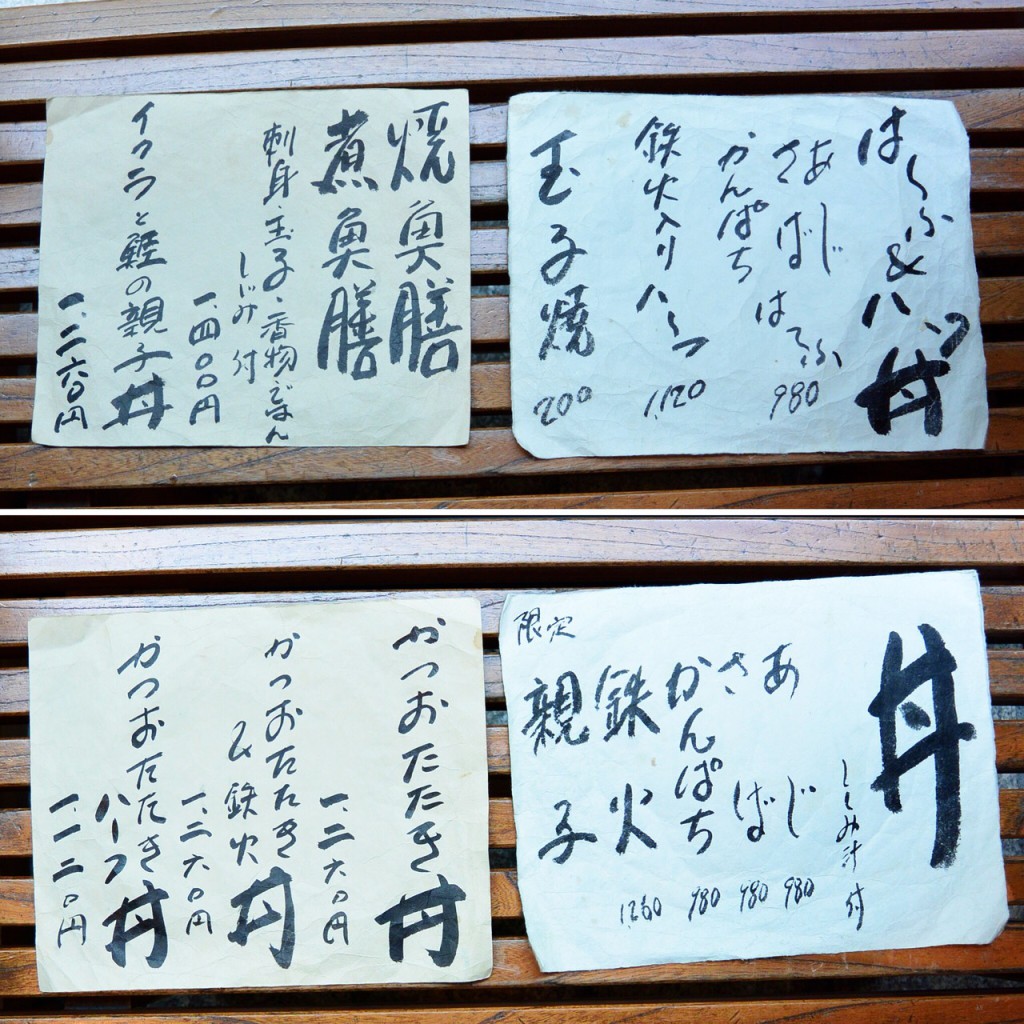 焼魚膳
煮魚膳
刺身・玉子・香物ごはん
しじみ付
一、四〇〇円
イクラと鮭の親子丼
一、二六〇円
はーふ&ハーフ丼
あじ
さば
かんぱち
はーふ 980
鉄火入りハーフ 1,120
玉子焼 200
かつおたたき丼
一、二六〇円
かつおたたき
&鉄火丼
一、二六〇円
かつおたたき
ハーフ丼
一、一二〇円
丼
しじみ汁付
あじ 980
さば 980
かんぱち 980
鉄火 1,260
限定
親子